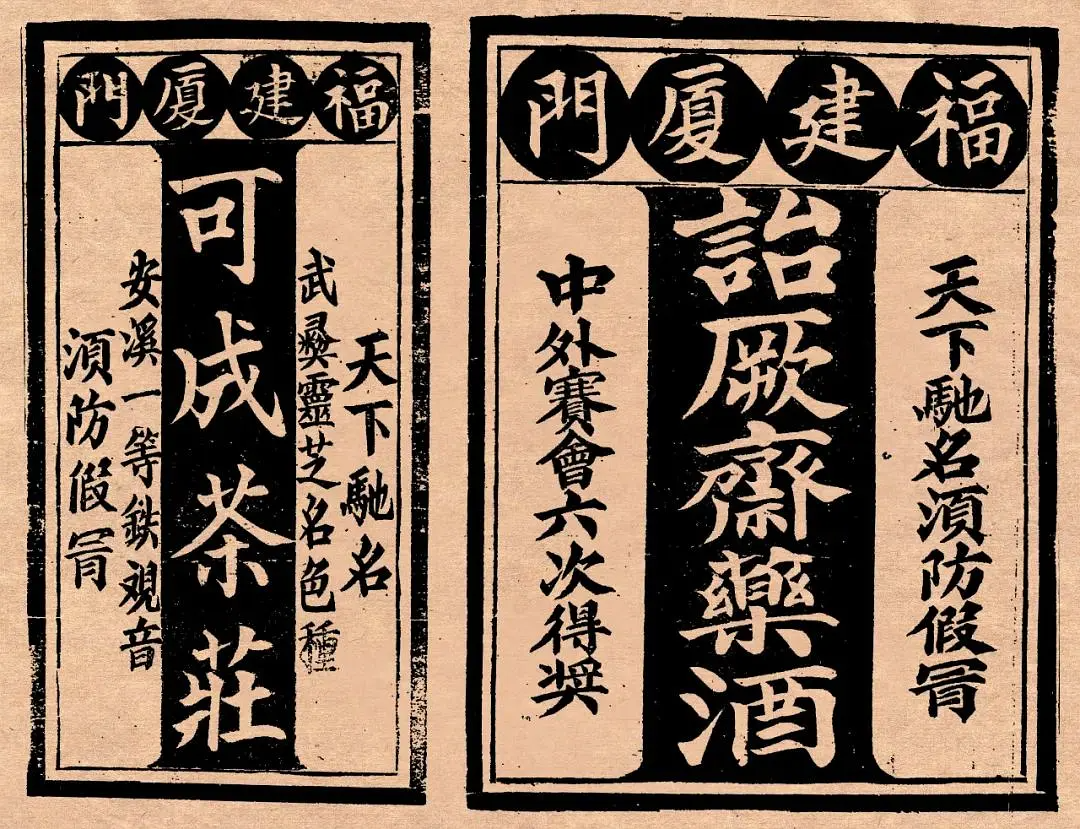 福建厦門
天下馳名湏防假冐
詒厥齋藥酒
中外賽會六次得奬
福建厦門
天下馳名
武彝靈芝名色種
可成茶莊
安溪一等鉄觀音
湏防假冐